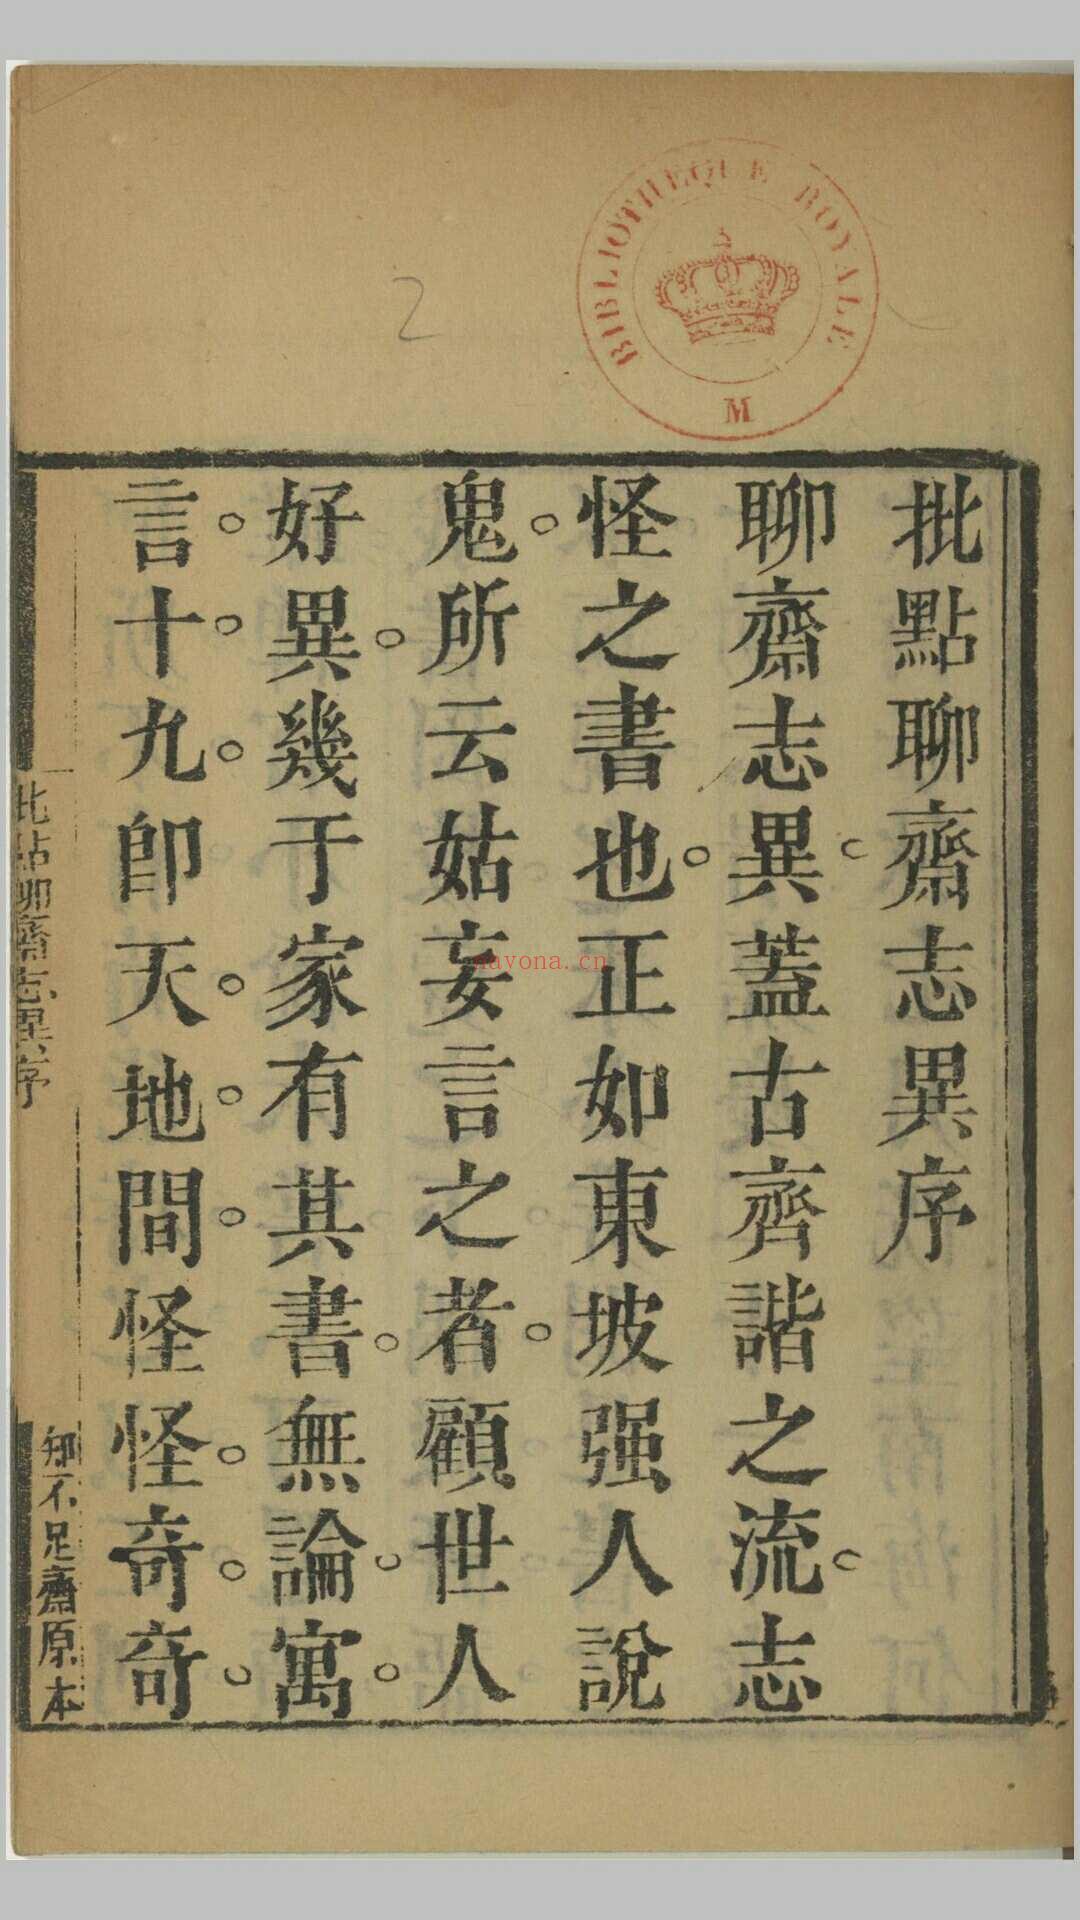 批點聊齋志異序
聊齋志異蓋古齊諧之流志
怪之書也正如東坡强人說
鬼所云姑妄言之者顧世人
好異幾于家有其書無論寓
言十九卽天地間怪怪奇奇
批點聊齋志異序
知不足齋原本
BIBLIOTHEQUE ROYALE
M
2
nayona.cn